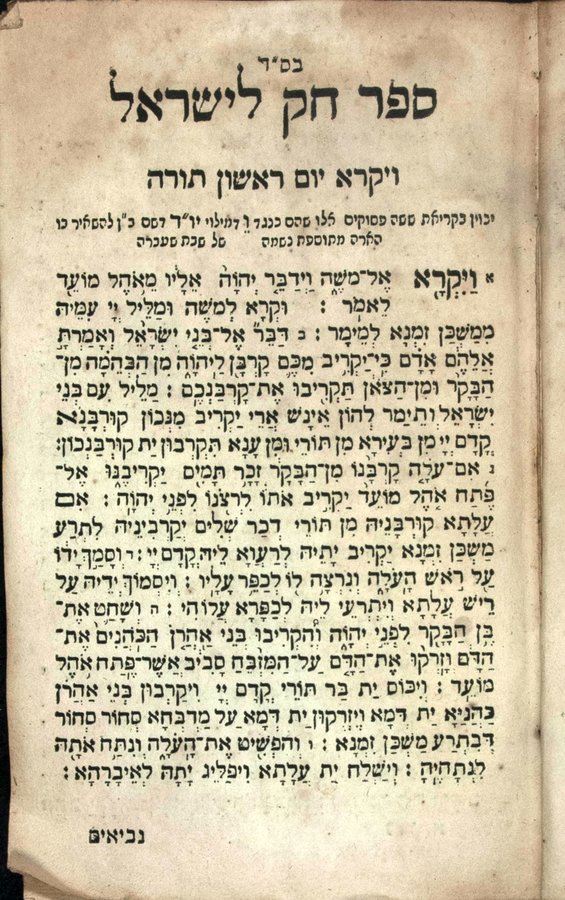 בס"ד
ספר חק לישראל
ויקרא יום ראשון תורה
יכוין בקריאת ששה פסוקים אלו שהם כנגד ו דמילוי יו"ד דשם ב"ן להשאיר בו
הארה מתוספת נשמה של שבת שעברה
א וַיִּקְרָא אֶל־מֹשֶׁה וַיְדַבֵּר יְהוָה אֵלָיו מֵאֹהֶל מוֹעֵד
לֵאמֹר : וּקְרָא לְמֹשֶׁה וּמַלֵּיל יְיָ עִמֵּיהּ
מִמַּשְׁכַּן זִמְנָא לְמֵימָר : ב דַּבֵּר אֶל־בְּנֵי יִשְׂרָאֵל וְאָמַרְתָּ
אֲלֵהֶם אָדָם כִּי־יַקְרִיב מִכֶּם קָרְבָּן לַיהוָה מִן הַבְּהֵמָה מִן־
הַבָּקָר וּמִן־הַצֹּאן תַּקְרִיבוּ אֶת־קָרְבַּנְכֶם : מַלֵּיל עִם בְּנֵי
יִשְׂרָאֵל וְתֵימַר לְהוֹן אֵינָשׁ אֲרֵי יַקְרִיב מִנְּכוֹן קוּרְבָּנָא
קֳדָם יְיָ מִן בְּעִירָא מִן תּוֹרֵי וּמִן עָנָא תְּקָרְבוּן יַת קוּרְבַּנְכוֹן :
ג אִם־עֹלָה קָרְבָּנוֹ מִן־הַבָּקָר זָכָר תָּמִים יַקְרִיבֶנּוּ אֶל־
פֶּתַח אֹהֶל מוֹעֵד יַקְרִיב אֹתוֹ לִרְצֹנוֹ לִפְנֵי יְהוָה : אִם
עֲלָתָא קוּרְבָּנֵיהּ מִן תּוֹרֵי דְּכַר שְׁלִים יְקָרְבִינֵיהּ לִתְרַע
מַשְׁכַּן זִמְנָא יְקָרֵיב יָתֵיהּ לְרַעֲוָא לֵיהּ קֳדָם יְיָ : ד וְסָמַךְ יָדוֹ
עַל רֹאשׁ הָעֹלָה וְנִרְצָה לוֹ לְכַפֵּר עָלָיו : וְיִסְמוֹךְ יְדֵיהּ עַל
רֵישׁ עֲלָתָא וְיִתְרְעֵי לֵיהּ לְכַפָּרָא עֲלוֹהִי : ה וְשָׁחַט אֶת־
בֶּן הַבָּקָר לִפְנֵי יְהוָה וְהִקְרִיבוּ בְּנֵי אַהֲרֹן הַכֹּהֲנִים אֶת־
הַדָּם וְזָרְקוּ אֶת־הַדָּם עַל־הַמִּזְבֵּחַ סָבִיב אֲשֶׁר־פֶּתַח אֹהֶל
מוֹעֵד : וְיִכּוֹס יַת בַּר תּוֹרֵי קֳדָם יְיָ וִיקָרְבוּן בְּנֵי אַהֲרֹן
כַּהֲנַיָּא יַת דְּמָא וְיִזְרְקוּן יַת דְּמָא עַל מַדְבְּחָא סְחוֹר סְחוֹר
דְּבִתְרַע מַשְׁכַּן זִמְנָא : ו וְהִפְשִׁיט אֶת־הָעֹלָה וְנִתַּח אֹתָהּ
לִנְתָחֶיהָ : וְיַשְׁלַח יַת עֲלָתָא וִיפַלֵּיג יָתַהּ לְאֵיבָרָהָא :
נביאים